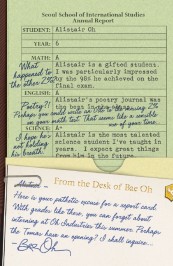 Seoul School of International Studies
Annual Report
STUDENT: Alistair Oh
YEAR: 6
MATH: A
Alistair is a gifted student.
I was particularly impressed
by the 98% he achieved on the
final exam.
What happened to the other 2%?
ENGLISH: A
Alistair's poetry journal was
Poetry?!
Perhaps you could write an ode to the missing 2%
on your math test. That seems like a sensible
use of your time.
SCIENCE: A+
Alistair is the most talented
science student I've taught in
years. I expect great things
from him in the future.
I hope he's not holding his breath.
From the Desk of Bae Oh
Alistair –
Here is your pathetic excuse for a report card.
With grades like these, you can forget about
interning at Oh Industries this summer. Perhaps
the Tomas have an opening? I shall inquire...
– Bae Oh